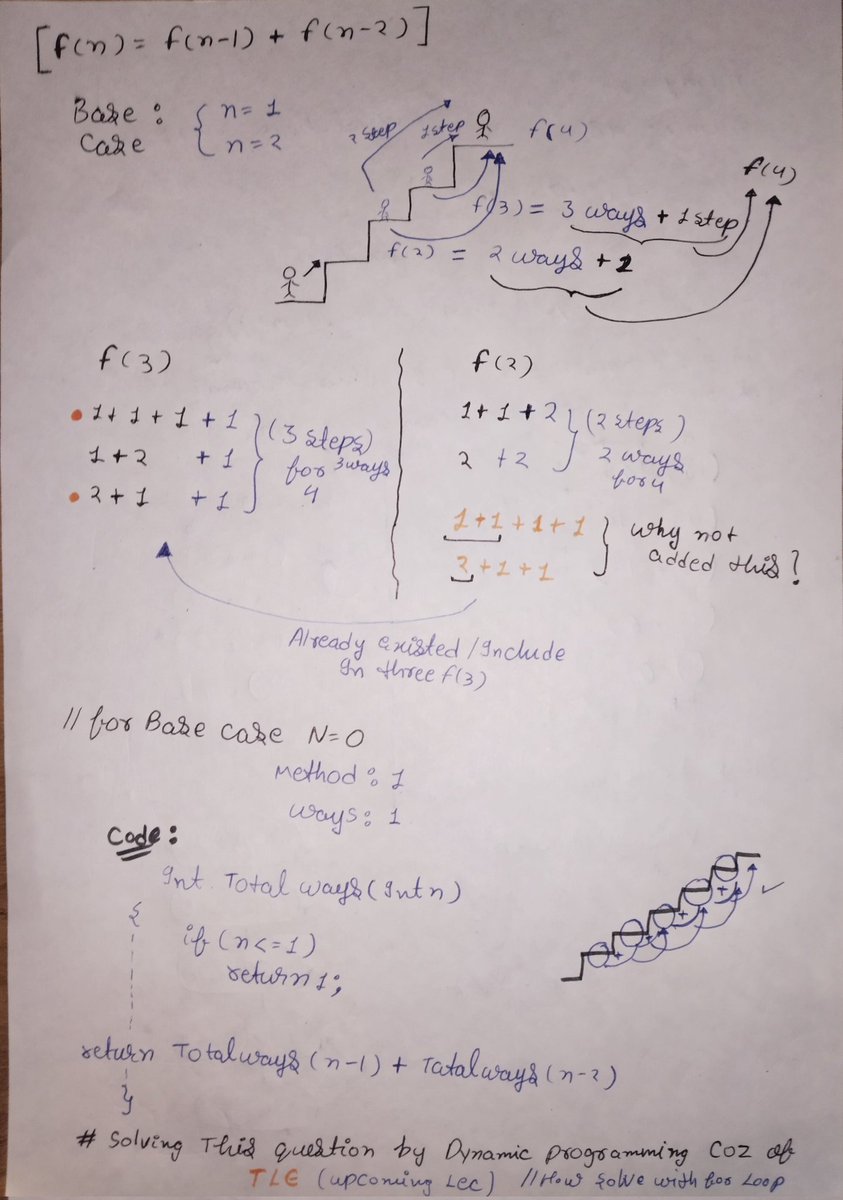 [f(n) = f(n-1) + f(n-2)]
Base : { n = 1
Case n = 2
2 step
1 step
f(4)
f(4)
f(3) = 3 ways + 1 step
f(2) = 2 ways + 2
f(3)
1 + 1 + 1 + 1
1 + 2 + 1
2 + 1 + 1
(3 steps)
for 3 ways
4
f(2)
1 + 1 + 2
2 + 2
(2 steps)
2 ways
for 4
1 + 1 + 1 + 1
2 + 1 + 1
why not
added this?
Already existed / Include
In three f(3)
// for Base case N = 0
Method : 1
ways : 1
Code :
Int Total ways (Int n)
{
if (n <= 1)
return 1;
return Totalways (n-1) + Tatalways (n-2)
}
# Solving This question by Dynamic programming Coz of
TLE (upcoming Lec) // How solve with for Loop